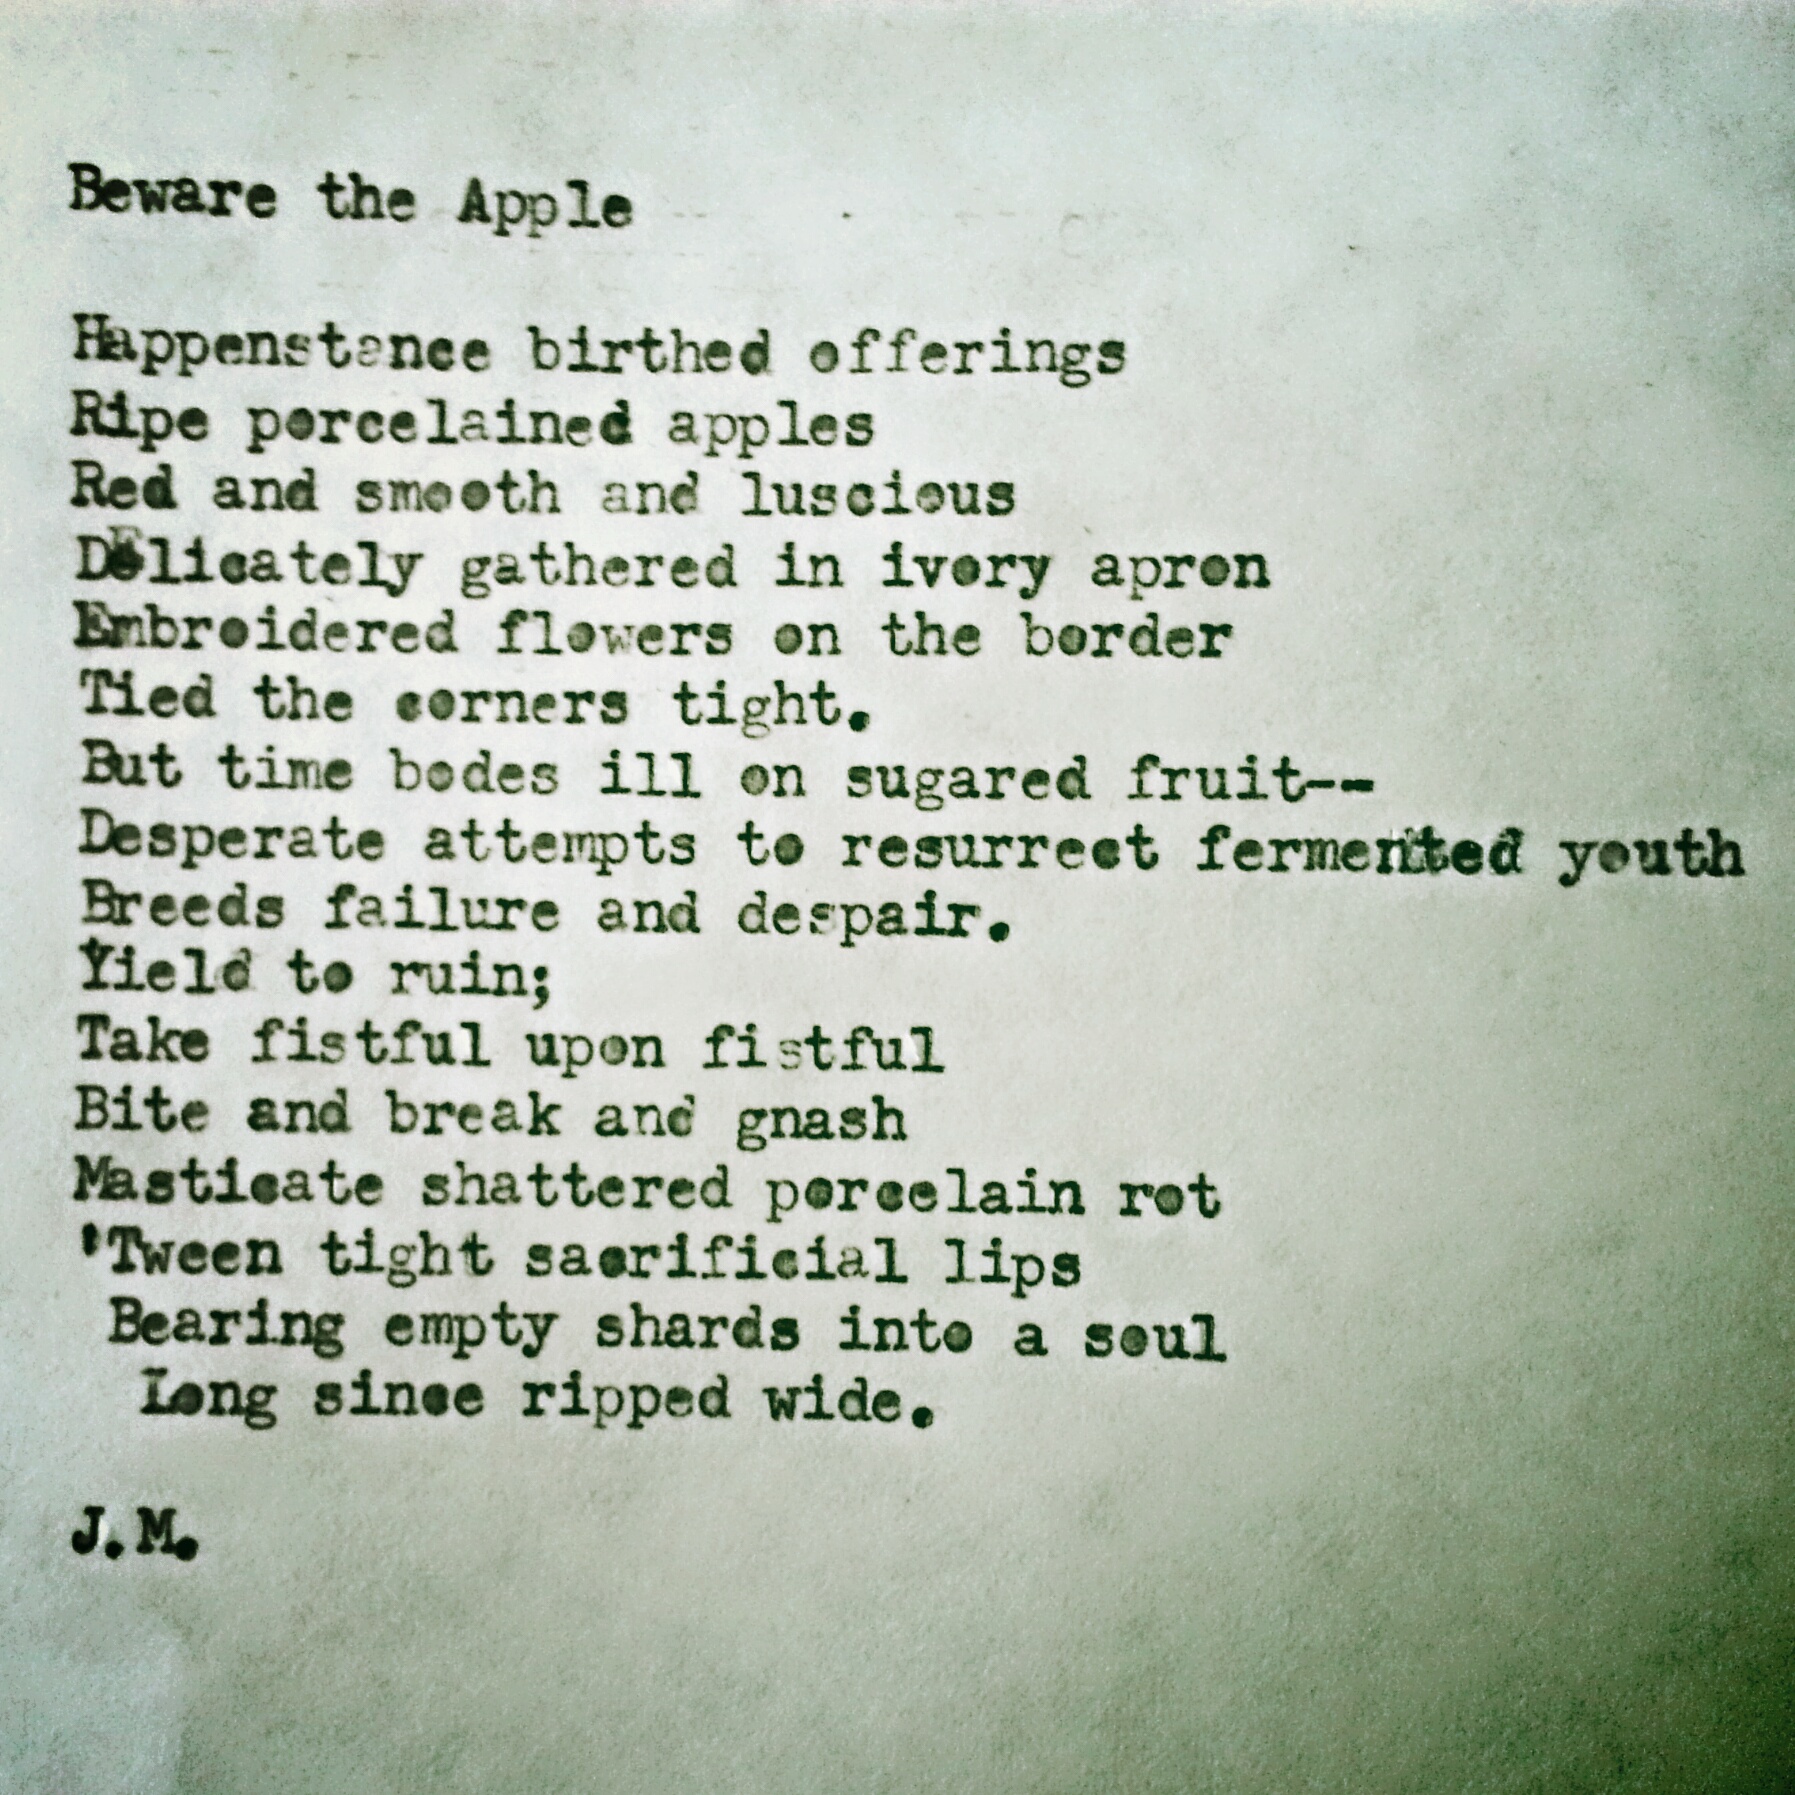 Beware the Apple
Happenstance birthed offerings
Ripe porcelained apples
Red and smooth and luscious
Delicately gathered in ivory apron
Embroidered flowers on the border
Tied the corners tight.
But time bodes ill on sugared fruit--
Desperate attempts to resurrect fermented youth
Breeds failure and despair.
Yield to ruin;
Take fistful upon fistful
Bite and break and gnash
Masticate shattered porcelain rot
'Tween tight sacrificial lips
Bearing empty shards into a soul
Long since ripped wide.
J.M.